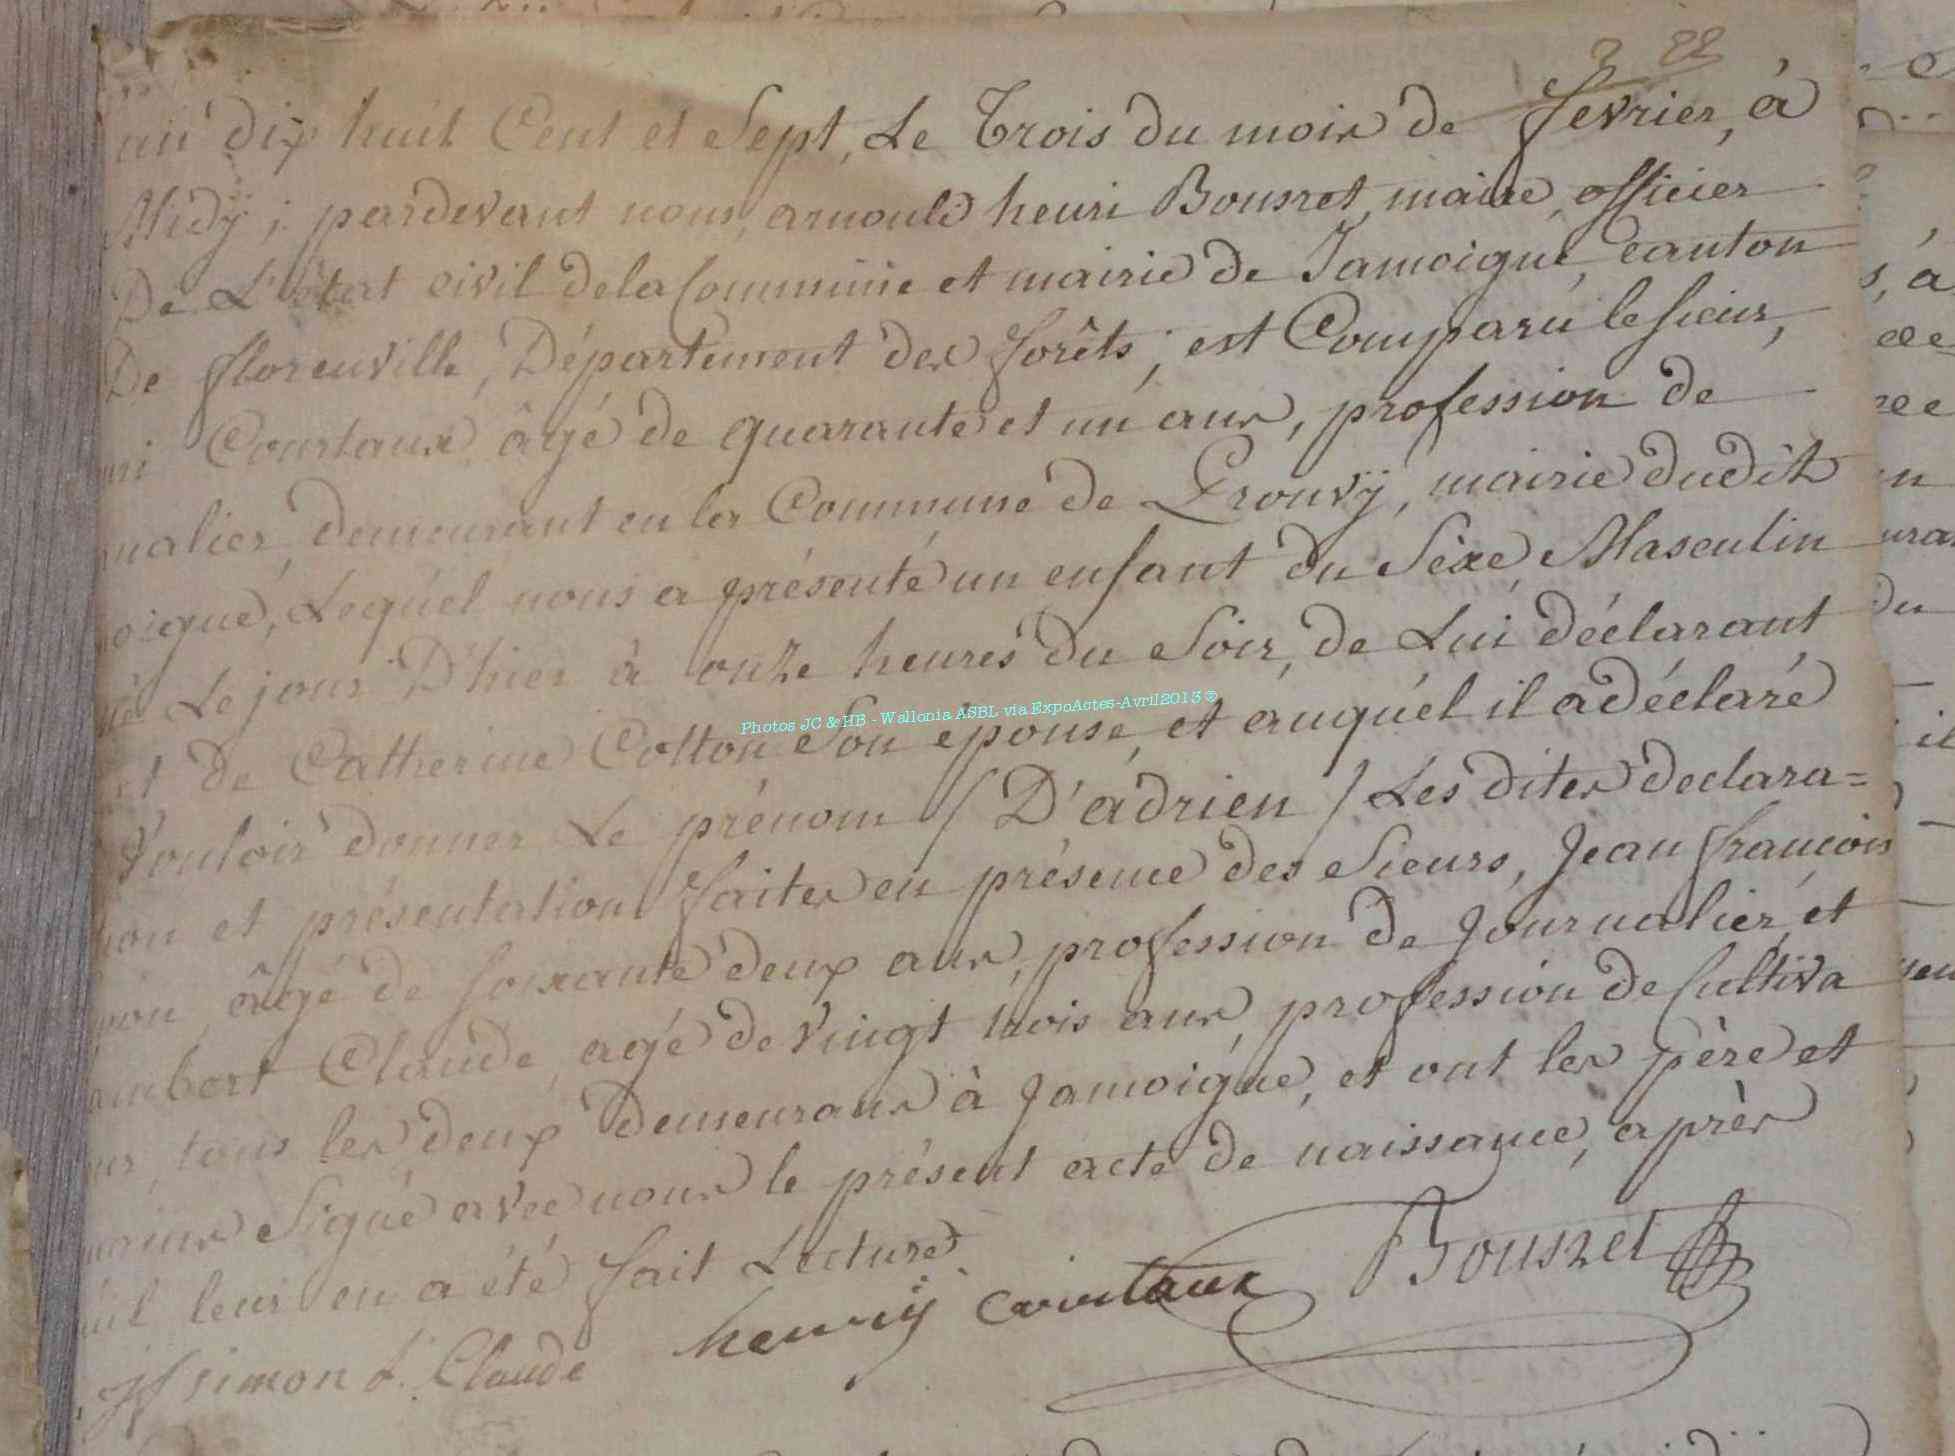 22
an dix huit Cent et Sept, Le Trois du mois de fevrier, à
Midÿ ; pardevant nous, arnould henri Bousret, maire, officier
De L'état civil dela Commune et mairie de Jamoigne, canton
De florenville, Département des forêts, est Comparu le sieur,
Courtaux, âgé de quarante et un ans, profession de
nalier, demeurant en la Commune de Prouvÿ, mairie dudit
oigne, Lequel nous a présenté un enfant du Sèxe Masculin
né Le jour D'hier à onze heures du Soir, de Lui déclarant,
et de Catherine Cotton Son épouse, et auquél il adéclaré
Vouloir donner Le prénom / D'adrien / Les dites declara=
ion et présentation faites en présence des Sieurs, Jean françois
mon, âgé de soixante deux ans, profession de Journalier, et
ambert Claude, agé de vingt trois ans, profession de Cultiva
ur, tous les deux demeurans à Jamoigne, et ont les père et
moins Signé avec nous le présent acte de naissance, après
u'il leur en a été fait Lecture
Bousret
henrÿ courtaux
JF simon L. Claude
Photos JC & HB - Wallonia ASBL via ExpoActes-Avril2013 ©